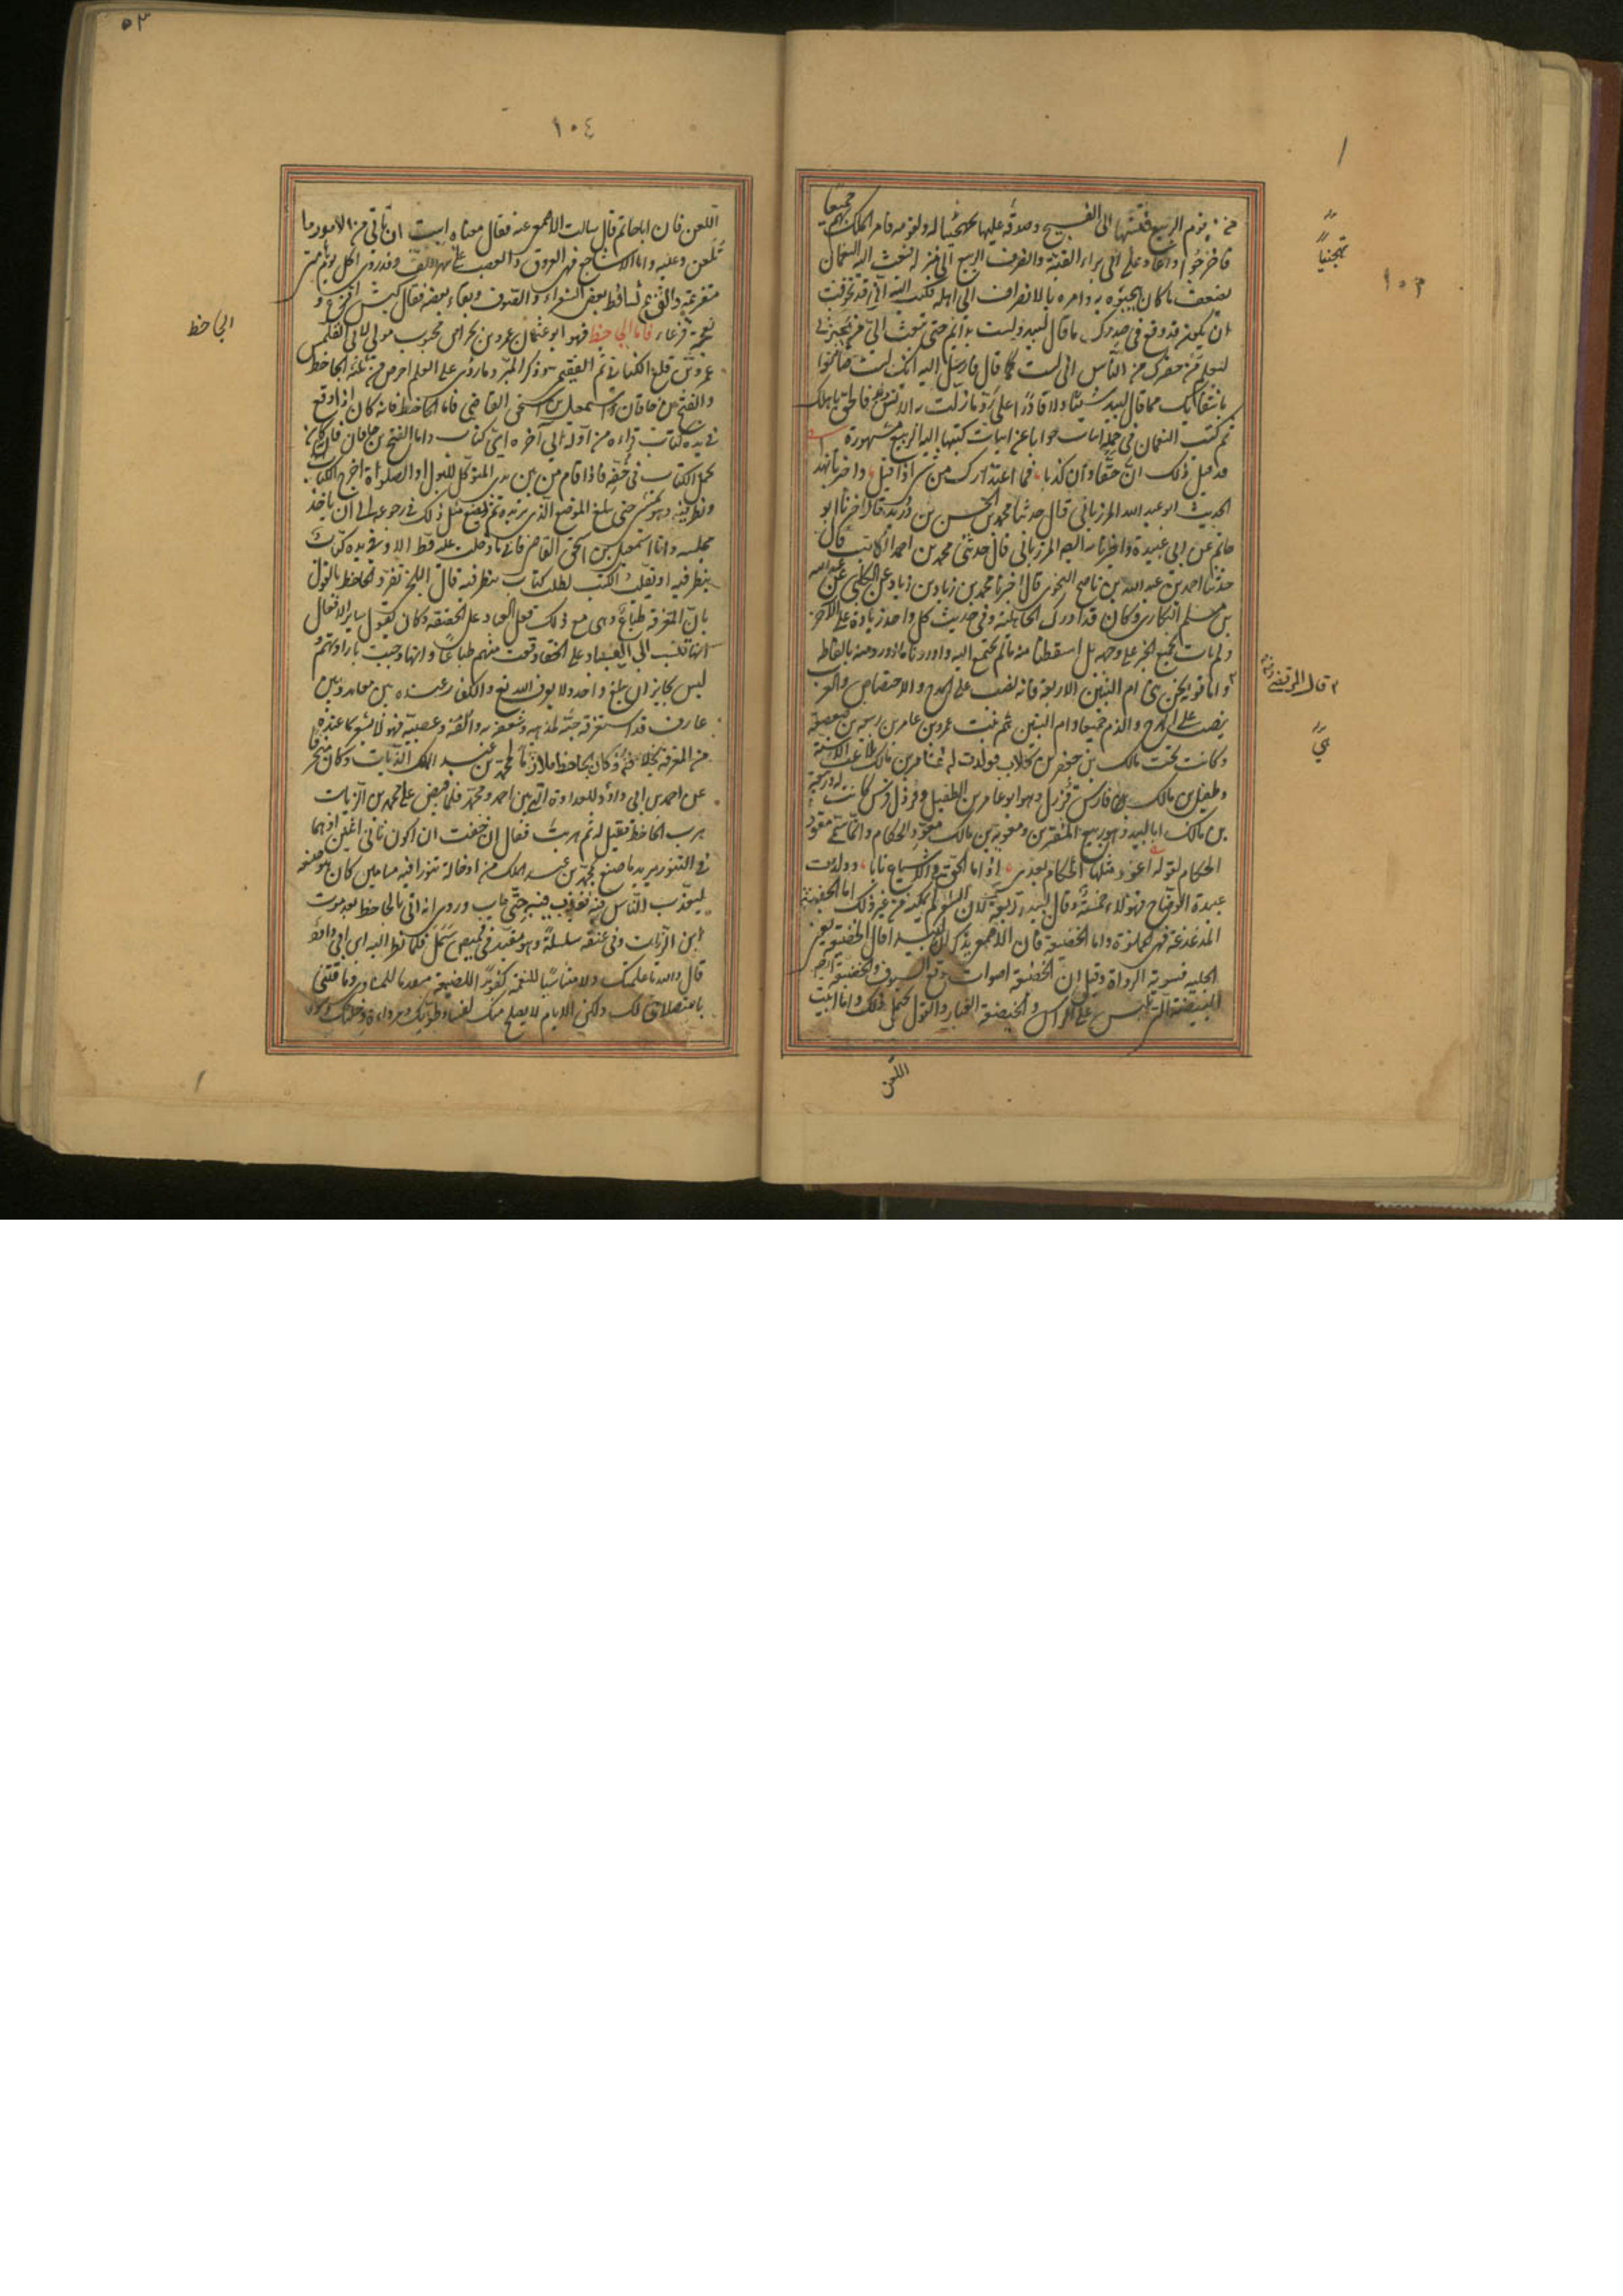 ١٠٣
تهجينًا
جميعا
فاخرجوا واعاد على ابى براء القبة وانصرف الربيع الى منزله فبعث اليه النعمان
بضعف ما كان يحبوه به وامره بالانصراف الى اهله فكتب اليه انى قد تخوفت
ان يكون قد وقع فى صدرك ما قال لبيد ولست برائم حتى تبعث الىّ من يجردنى
ليعلم من حضرك من الناس انى لست كما قال فارسل اليه انك لست صانعا
بانتفائك مما قال لبيد شيئا ولا قادرا على رد ما زلت به الالسن فالحق باهلك
ثم كتب النعمان فى جملة ابيات جوابا عن ابيات كتبها اليه الربيع مشهورة
قد قيل ذلك ان حقا وان كذبا فما اعتذارك من شىء اذا قيل واخبرنا بهذا
الحديث ابو عبد الله المرزبانى قال حدثنا محمد بن الحسن بن دريد قال اخبرنا ابو
حاتم عن ابى عبيدة واخبرنا به ايضا المرزبانى قال حدثنى محمد بن احمد الكاتب قال
حدثنا احمد بن عبد الله بن ناصح النحوى قال اخبرنا محمد بن زياد بن زياد عن الكلبى عن عبد الله
بن مسلم البكارى وكان قد ادرك الجاهلية وفى حديث كل واحد زيادة على الآخر
ولم نات بجميع الخبر على وجهه بل اسقطنا منه ما لم نحتج اليه واوردنا ما اوردناه منه بالفاظه
قال المرتضى
واما قوله نحن بنى ام البنين الاربعة فانه نصب على المدح والاختصاص والعرب
ينصب على المدح والذم جميعا وام البنين هم بنت عمرو بن عامر بن ربيعة بن صعصعة
وكانت تحت مالك بن جعفر بن كلاب فولدت له عامر بن مالك ملاعب الاسنة
وطفيل بن مالك فارس قرزل وهو ابو عامر بن الطفيل وقرزل فرس كانت له وربيعة
بن مالك ابا لبيد وهو ربيع المقترين ومعوية بن مالك معود الحكام وانما سمى معود
الحكام لقوله اعود مثلها الحكام بعدى اذا ما الحق فى الاشياع نابا وولدت
عبيدة الوضاح فهؤلاء خمسة وقال لبيد اربعة لان الشعر لم يمكنه من غير ذلك اما الجفنة
المدعدعة فهى المملوة واما الخيضعة فان الاصمعى يذكر ان لبيدا قال الخضعة يعنى
الجلبة فسوته الرواة وقيل ان الخضعة اصوات وقع السيوف والخيضعة ايضا
البيضة التى تلبس على الراس والخيضعة الغبار والقول يحتمل ذلك واما ابيت
اللعن
١٠٤
اللعن فان اباحاتم قال سالت الاصمعى عنه فقال معناه ابيت ان تاتى من الامور ما
تلعن عليه واما الاشاجع فهى العروق والعصب على ظهر الكف وقد روى اكل يوم هامتى
مقزعة والقزع تساقط بعض الشعر والصوف وبقاء بعضه يقال كبش اقزع و
نعجة قزعاء فاما الجاحظ فهو ابو عثمان عمرو بن بحر بن محبوب مولى لابى القلمس
الجاحظ
عمرو بن قلع الكنانى ثم الفقيمى وذكر المبرد ما راى على العلم احرص من ثلثة الجاحظ
والفتح بن خاقان واسمعيل بن اسحق القاضى فاما الجاحظ فانه كان اذا وقع
فى يده كتاب قراه من اوله الى آخره اى كتاب كان واما الفتح بن خاقان فانه كان
يحمل الكتاب فى خفه فاذا قام من بين يدى المتوكل للبول او الصلوة اخرج الكتاب
ونظر فيه وهو يمشى حتى يبلغ الموضع الذى يريده ثم يصنع مثل ذلك فى رجوعه الى ان ياخذ
مجلسه واما اسمعيل بن اسحق القاضى فانى ما دخلت عليه قط الا وفى يده كتاب
ينظر فيه او يقلب الكتب لطلب كتاب ينظر فيه قال البلخى تفرد الجاحظ بالقول
بان المعرفة طباع وهى مع ذلك فعل العباد على الحقيقة وكان يقول سائر الافعال
انها تنسب الى العباد على انها وقعت منهم طباعا وانها وجبت بارادتهم و
ليس بجايز ان يبلغ واحد ولا يعرف الله تع والكفار عنده بين معاند وبين
عارف قد استغرقه حبه لمذهبه وشغفه به والفه وعصبيته فهو لا يشعر بما عنده
من المعرفة بخلافه وكان الجاحظ ملازما لمحمد بن عبد الملك الزيات وكان منحرفا
عن احمد بن ابى داود للعداوة التى بين احمد ومحمد فلما قبض على محمد بن الزيات
هرب الجاحظ فقيل له لم هربت فقال انى خفت ان اكون ثانى اثنين اذهما
فى التنور يريد ما صنع بمحمد بن عبد الملك من ادخاله تنورا فيه مسامير كان هو صنعه
ليعذب الناس فيه فعذب فيه حتى مات وروى انه اتى بالجاحظ بعد موت
ابن الزيات وفى عنقه سلسلة وهو مقيد فى قميص سمل فلما نظر اليه ابن ابى داود
قال والله ما علمتك الا متناسيا للنعمة كفورا للصنيعة معددا للمساوى وما فتنى
باستصلاحى لك ولكن الايام لا تصلح منك لفساد طويتك ورداءة دخلتك وسوء